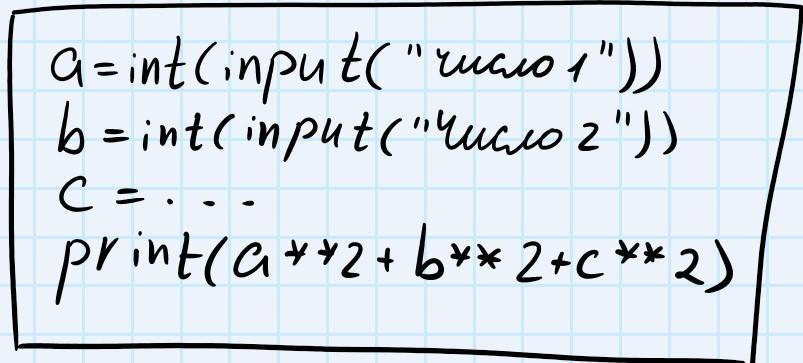 a=int(input("число 1"))
b=int(input("Число 2"))
c = . . .
print(a**2+b**2+c**2)